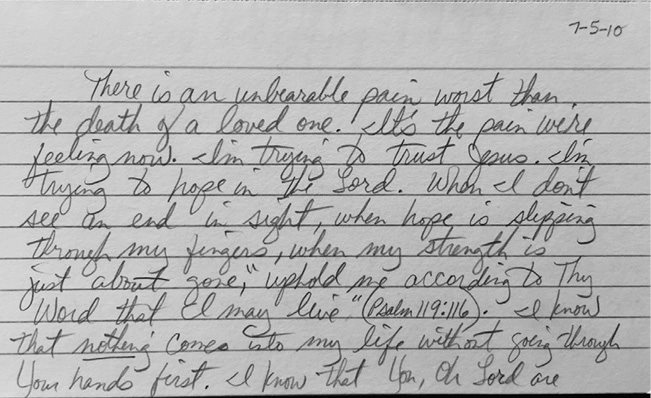 7-5-10
There is an unbearable pain worst than
the death of a loved one. It's the pain we're
feeling now. I'm trying to trust Jesus. I'm
trying to hope in the Lord. When I don't
see an end in sight, when hope is slipping
through my fingers, when my strength is
just about gone, "uphold me according to Thy
Word that I may live" (Psalm 119:116). I know
that nothing comes into my life without going through
Your hands first. I know that You, Oh Lord are